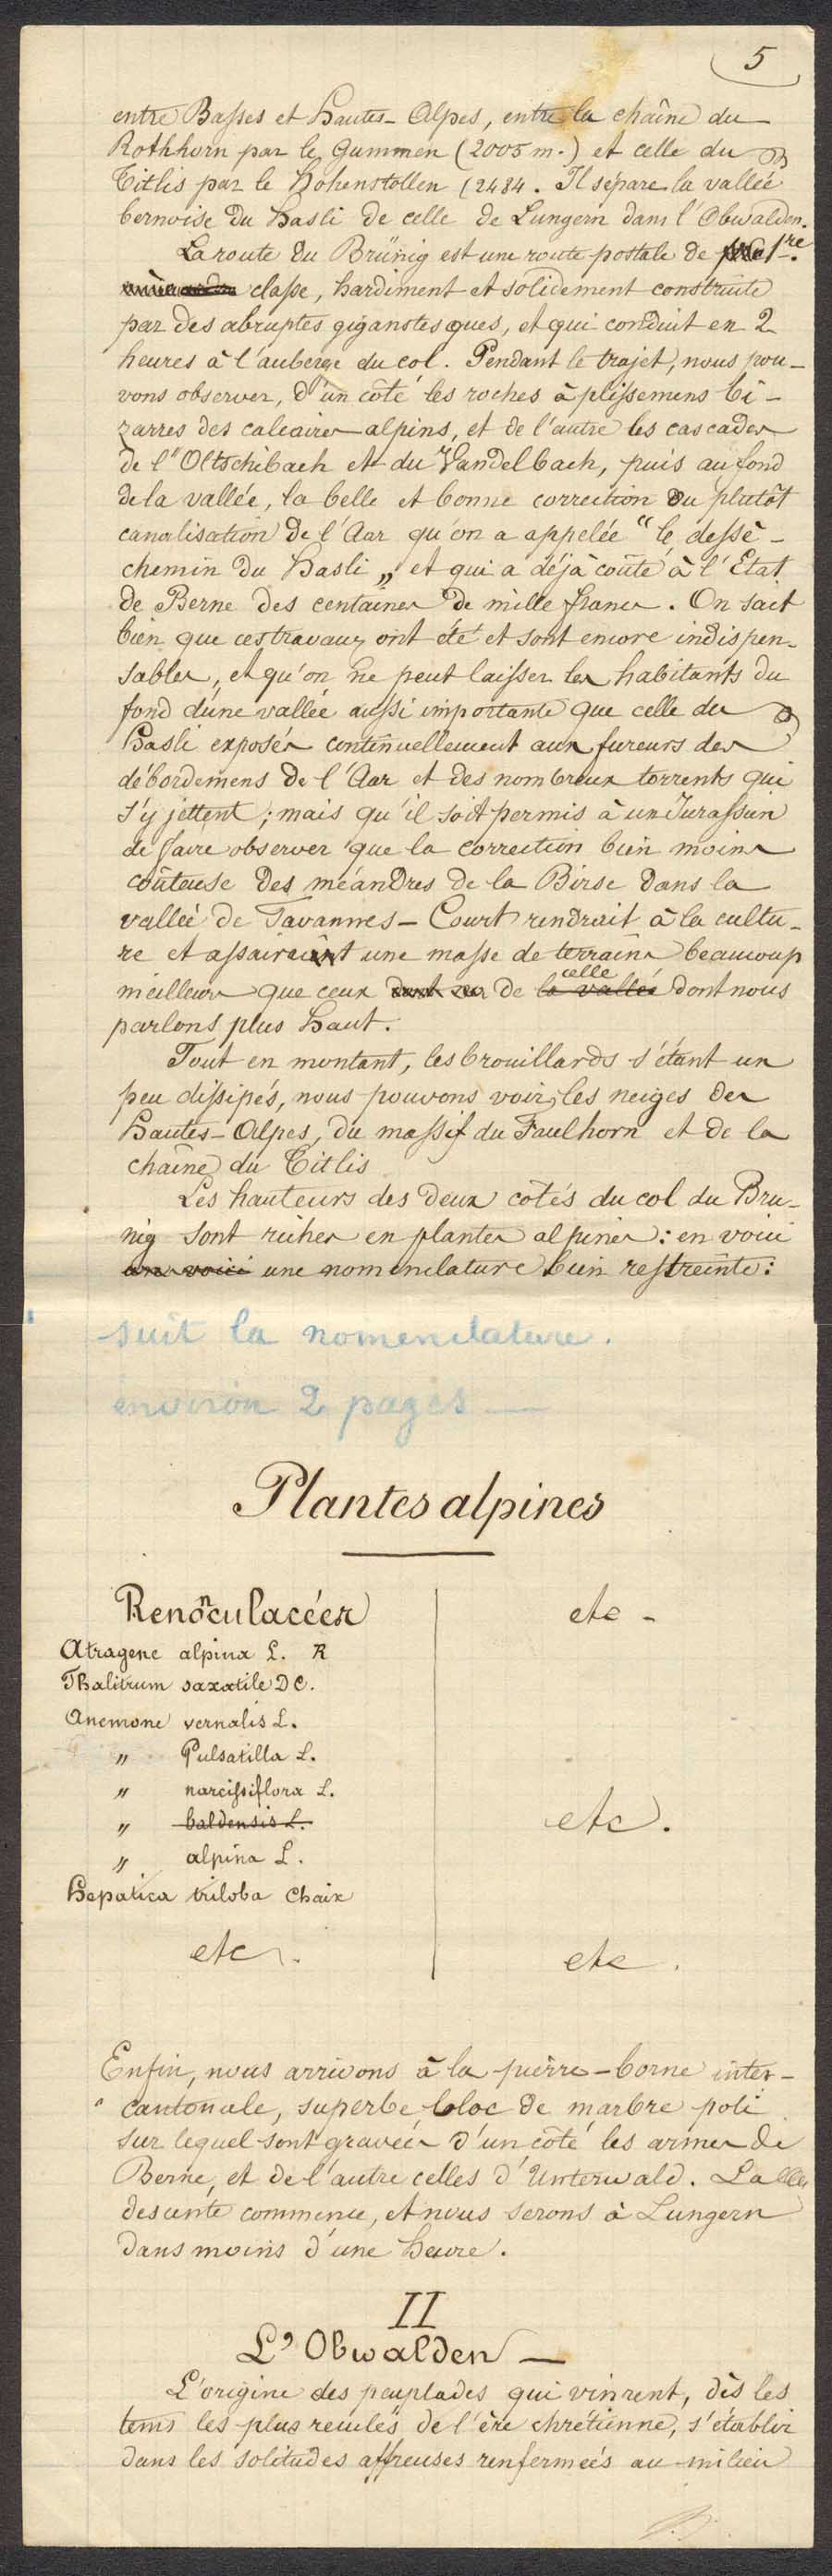 5
entre Basses et Hautes-Alpes, entre la chaîne du
Rothhorn par le Gummen (2005 m.) et celle du
Titlis par le Hohenstollen (2484. Il sépare la vallée
bernoise du Hasli de celle de Lungern dans l'Obwalden.
La route du Brünig est une route postale de 1re
classe, hardiment et solidement construite
par des abruptes giganstesques, et qui conduit en 2
heures à l'auberge du col. Pendant le trajet, nous pou-
vons observer, d'un côté les roches à plissemens bi-
zarres des calcaires alpins, et de l'autre les cascades
de l'Oltschibach et du Vandelbach, puis au fond
de la vallée, la belle et bonne correction ou plutôt
canalisation de l'Aar qu'on a appelée "le dessè-
chemin du Hasli„ et qui a déjà coûté à l'Etat
de Berne des centaines de mille francs. On sait
bien que ces travaux ont été et sont encore indispen-
sables, et qu'on ne peut laisser les habitants du
fond d'une vallée aussi importante que celle du
Hasli exposés continuellement aux fureurs des
débordemens de l'Aar et des nombreux torrents qui
s'y jettent; mais qu'il soit permis à un Jurassien
de faire observer que la correction bien moins
coûteuse des méandres de la Birse dans la
vallée de Tavannes-Court rendrait à la cultu-
re et assairait une masse de terrains beaucoup
meilleurs que ceux de la vallée celle dont nous
parlons plus haut.
Tout en montant, les brouillards s'étant un
peu dissipés, nous pouvons voir les neiges des
Hautes-Alpes, du massif du Faulhorn et de la
chaîne du Titlis
Les hauteurs des deux côtés du col du Bru-
nig sont riches en plantes alpines: en voici
en voici une nomenclature bien restreinte:
suit la nomenclature.
environ 2 pages —
Plantes alpines
Renonculacées
etc -
Atragene alpina L. R
Thalitrum saxatile DC.
Anemone vernalis L.
" Pulsatilla L.
" narcissiflora L.
" baldensis L.
etc.
" alpina L.
Hepatica triloba Chaix
etc.
etc.
Enfin, nous arrivons à la pierre-borne inter-
cantonale, superbe bloc de marbre poli
sur lequel sont gravées d'un côté les armes de
Berne, et de l'autre celles d'Unterwald. La
descente commence, et nous serons à Lungern
dans moins d'une heure.
II
L'Obwalden —
L'origine des peuplades qui vinrent, dès les
tems les plus reculés de l'ère chrétienne, s'établir
dans les solitudes affreuses renfermées au milieu